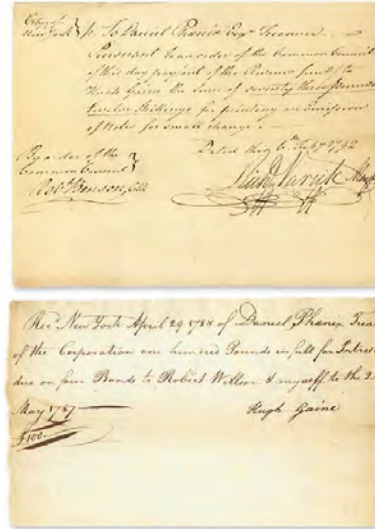 City of
New York } ss. To Daniel Phœnix Esqr. Treasurer
Pursuant to an order of the Common Council
of this day pay out of the Revenue fund to
Hugh Gaine the Sum of seventy three pounds
twelve Shillings for printing an Emission
of Notes for small change.
By order of the Dated this 6th July 1792
Common Council }
Robt. Benson, Clk Richd. Varick Mayor
Recd. New York April 29 1788 of Daniel Phœnix Trea
of the Corporation one hundred Pounds in full for Intrest
due on four Bonds to Robert Willson & myself to the 2
May 1787
Hugh Gaine
£100